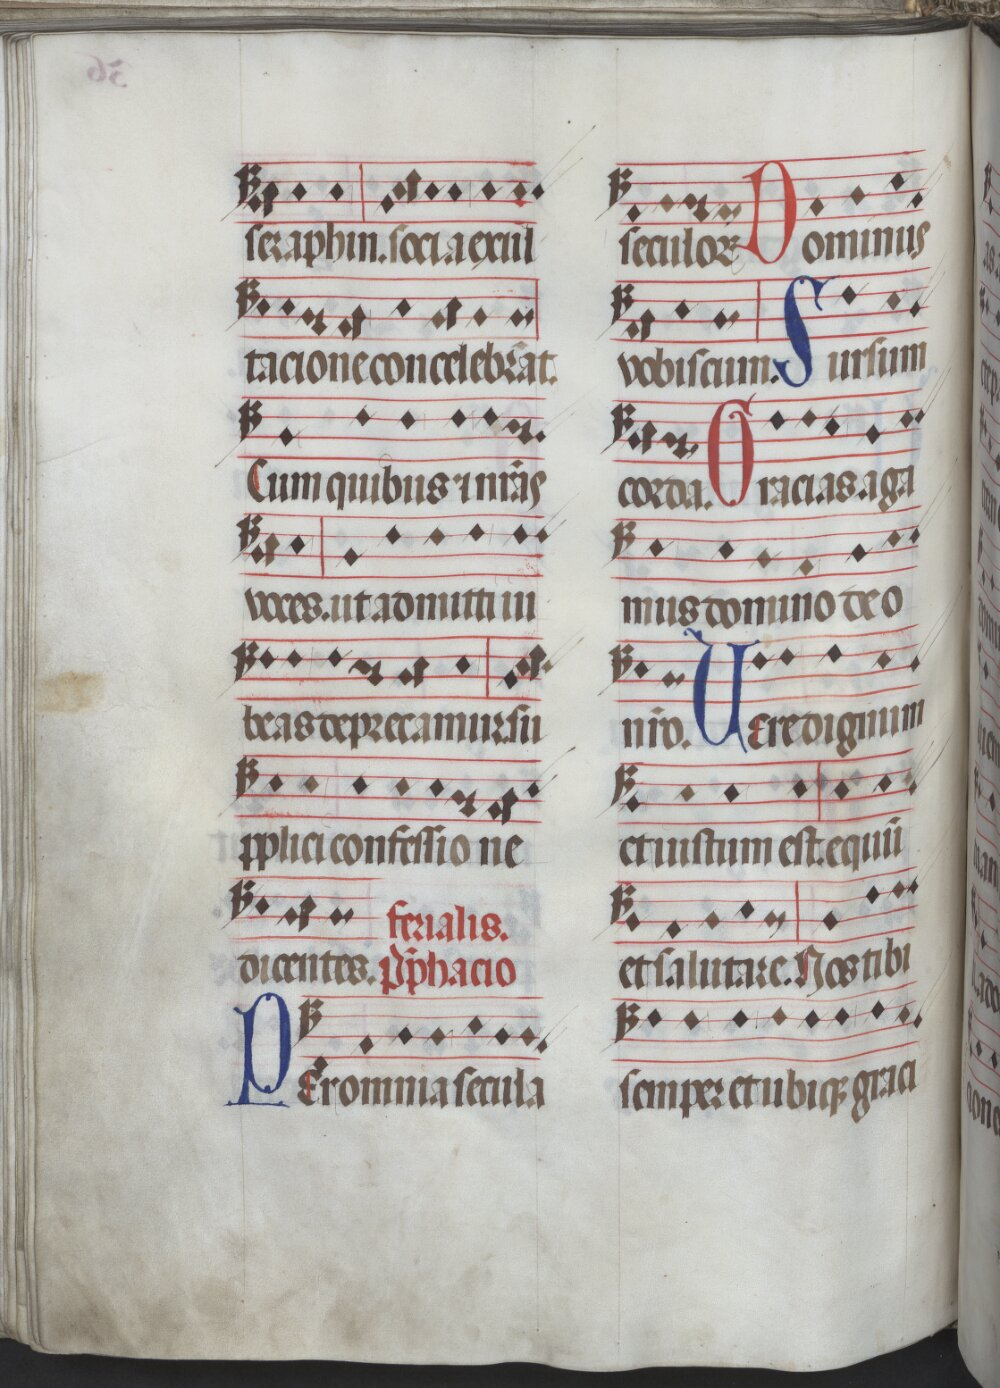 seraphin. socia exul
tacione concelebrāt.
Cum quibus ⁊ nr̄as
voces. ut admitti iu
beas deprecamur. su
pplici confessio ne
dicentes.
ferialis.
p̄phacio
Per omnia secula
seculoꝝ Dominus
vobiscum. Sursum
corda. Gracias aga
mus domino deo
nr̄o. Uere dignum
et iustum est. equū
et salutare. Nos tibi
semper et ubiqꝫ graci